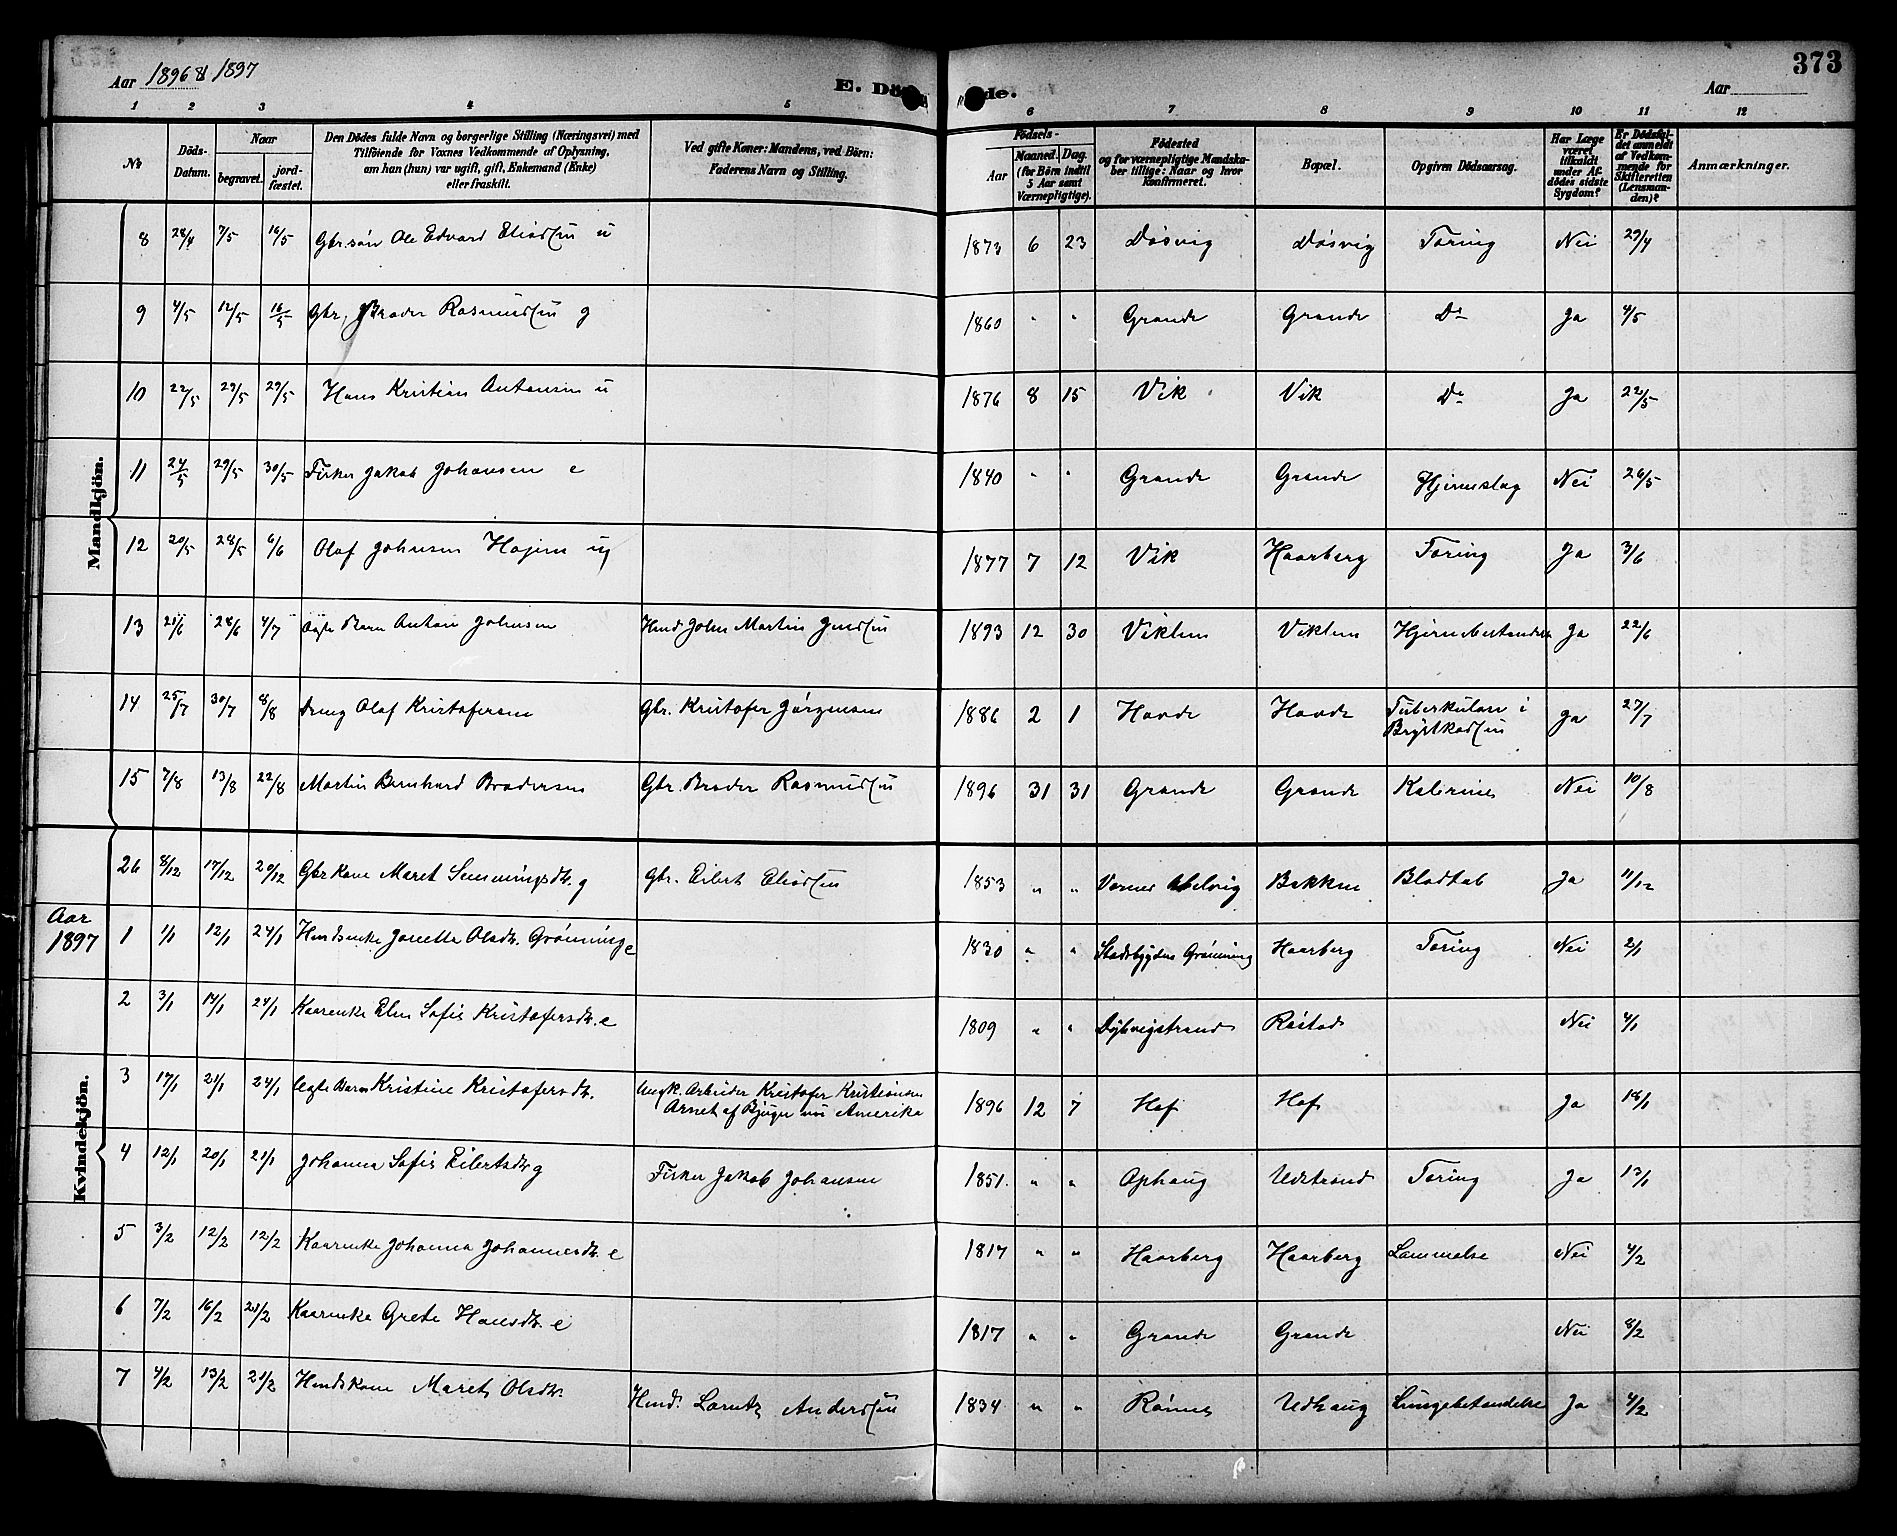 373
Aar 1896 & 1897
E. Dö de.
Aar
1 2 3 4 5 6 7 8 9 10 11 12
No
Döds-Datum.
Naar
begravet.
jord-fæstet.
Den Dödes fulde Navn og borgerlige Stilling (Næringsvei) med
Tilföiende for Voxnes Vedkommende af Oplysning,
om han (hun) var ugift, gift, Enkemand (Enke)
eller fraskilt.
Ved gifte Koner: Mandens, ved Börn:
Faderens Navn og Stilling.
Födsels-
Aar
Maaned. Dag.
(for Börn indtil
5 Aar samt
Værnepligtige).
Födested
og for værnepligtige Mandska-
ber tillige: Naar og hvor
Konfirmeret.
Bopæl.
Opgiven Dödsaarsag.
Har Læge
været
tilkaldt
under Af-
dödes sidste
Sygdom?
Er Dödsfal-
det anmeldt
af Vedkom-
mende for
Skifteretten
(Lensman-
den)?
Anmærkninger.
Mandkjön.
8 28/4 7/5 16/5 Gbr.søn Ole Edvard Eliassen u 1873 6 23 Døsvig Døsvig Tæring Nei 29/4
9 4/5 12/5 16/5 Gbr. Broder Rasmussen g 1860 " " Grande Grande Do Ja 4/5
10 22/5 29/5 29/5 Hans Kristian Antonsen u 1876 8 15 Vik Vik Do Ja 22/5
11 24/5 29/5 30/5 Fisker Jakob Johansen e 1840 " " Grande Grande Hjerneslag Nei 26/5
12 20/5 28/5 6/6 Olaf Johnsen ug 1877 7 12 Vik Haarberg Tæring Ja 3/6
13 21/6 28/6 4/7 Ægte Barn Anton Johnsen Hmd John Martin Jensen 1893 12 30 Viklem Viklem Hjernebetændelse Ja 22/6
14 25/7 30/7 8/8 Dreng Olaf Kristofersen Gbr. Kristofer Jørgensen 1886 2 1 Hovde Hovde Tuberkulose i
Brystkassen Ja 27/7
15 7/8 13/8 22/8 Martin Bernhard Brodersen Gbr. Broder Rasmussen 1896 31 31 Grande Grande Kolerine Nei 10/8
Kvindekjön.
26 8/12 17/12 20/12 Gbrkone Maret Semmingsdtr. g Gbr. Eilert Eliassen 1853 " " Vornes Bakken Blodtab Ja 11/12
Aar
1897
1 1/1 12/1 24/1 Hmdsenke Jonetta Olsdtr. Grønning e 1830 " " Stadsbygden Grønning Haarberg Tæring Nei 2/1
2 3/1 14/1 24/1 Kaarenke Elen Sofie Kristofersdtr. e 1809 " " Røstad Nei 4/1
3 17/1 21/1 24/1 Uægte Barn Kristine Kristofersdtr. Ungk. Arbeider Kristofer Kristiansen
Arnet af Bjugn nu Amerika 1896 12 7 Hof Hof Ja 18/1
4 12/1 20/1 21/1 Johanna Sofie Eilertsdtr g Fisker Jakob Johansen 1851. " " Ophaug Udstrand Tæring Ja 13/1
5 3/2 12/2 12/2 Kaarenke Johanna Johannesdtr. e 1817 " " Haarberg Haarberg Lammelse Nei 4/2
6 7/2 16/2 21/2 Kaarenke Grete Hansdtr. e 1817 " " Grande Grande Nei 8/2
7 4/2 13/2 21/2 Hmdskone Maret Olsdtr. Hmd. Lorentz Anderssen 1834 " " Rønnes Udhaug Lungebetændelse Ja 4/2